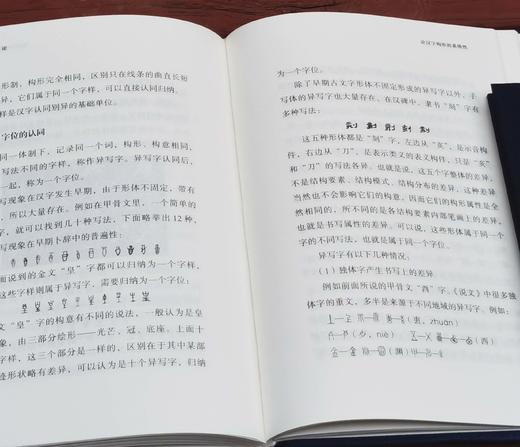 论
形制，构形完全相同，区别只在线条的曲直长短
异，它们属于同一个字样，可以直接认同归纳。
样是汉字认同别异的基础单位。
字位的认同
同一体制下，记录同一个词，构形、构意相同，
写法不同的字样，称作异写字。异写字认同后，
一起，称为一个字位。
写现象在汉字发生早期，由于形体不固定，带有
，所以大量存在。例如在甲骨文里，一个简单的
字，就可以找到几十种写法，下面略举出12种，
写现象在早期卜辞中的普遍性：
面说到的金文“皇”字都可以归纳为一个字样，
这些字样则属于异写字，需要归纳为一个字位：
文“皇”字的构意有不同的说法，一般认为是皇
，由三部分绘形——光芒、冠、底座。上面十
字样，这三个部分是一样的，区别在于其中某部
迹形状略有差异，可以认为是十个异写字，归纳
论汉字构形的系统性
为一个字位。
除了早期古文字形体不固定形成的异写字以外，手
写体的异写字也大量存在。在汉碑中，隶书“刻”字有
多种写法：
这五种形体都是“刻”字，左边从“亥”，是示音构
件，右边从“刀”，是表示类义的表义构件，只是“亥”
和“刀”的写法各异。也就是说，这五个字整体的差异，
不是结构要素、结构模式、结构分布的差异，这种差异
当然也不会影响它们的构意。因而它们的构形属性是全
然相同的，所不同的是各结构要素内部笔画上的差异，
也就是书写属性的差异。可以说，这些形体属于同一个
字的不同写法，也就是属于同一个字位。
异写字有以下几种情况：
（1）独体字产生书写上的差异
例如前面所说的甲骨文“酉”字，《说文》中很多独
体字的重文，多半是来源于不同地域的异写字。例如：
（叀，zhuān）
（歺，niè）（西）